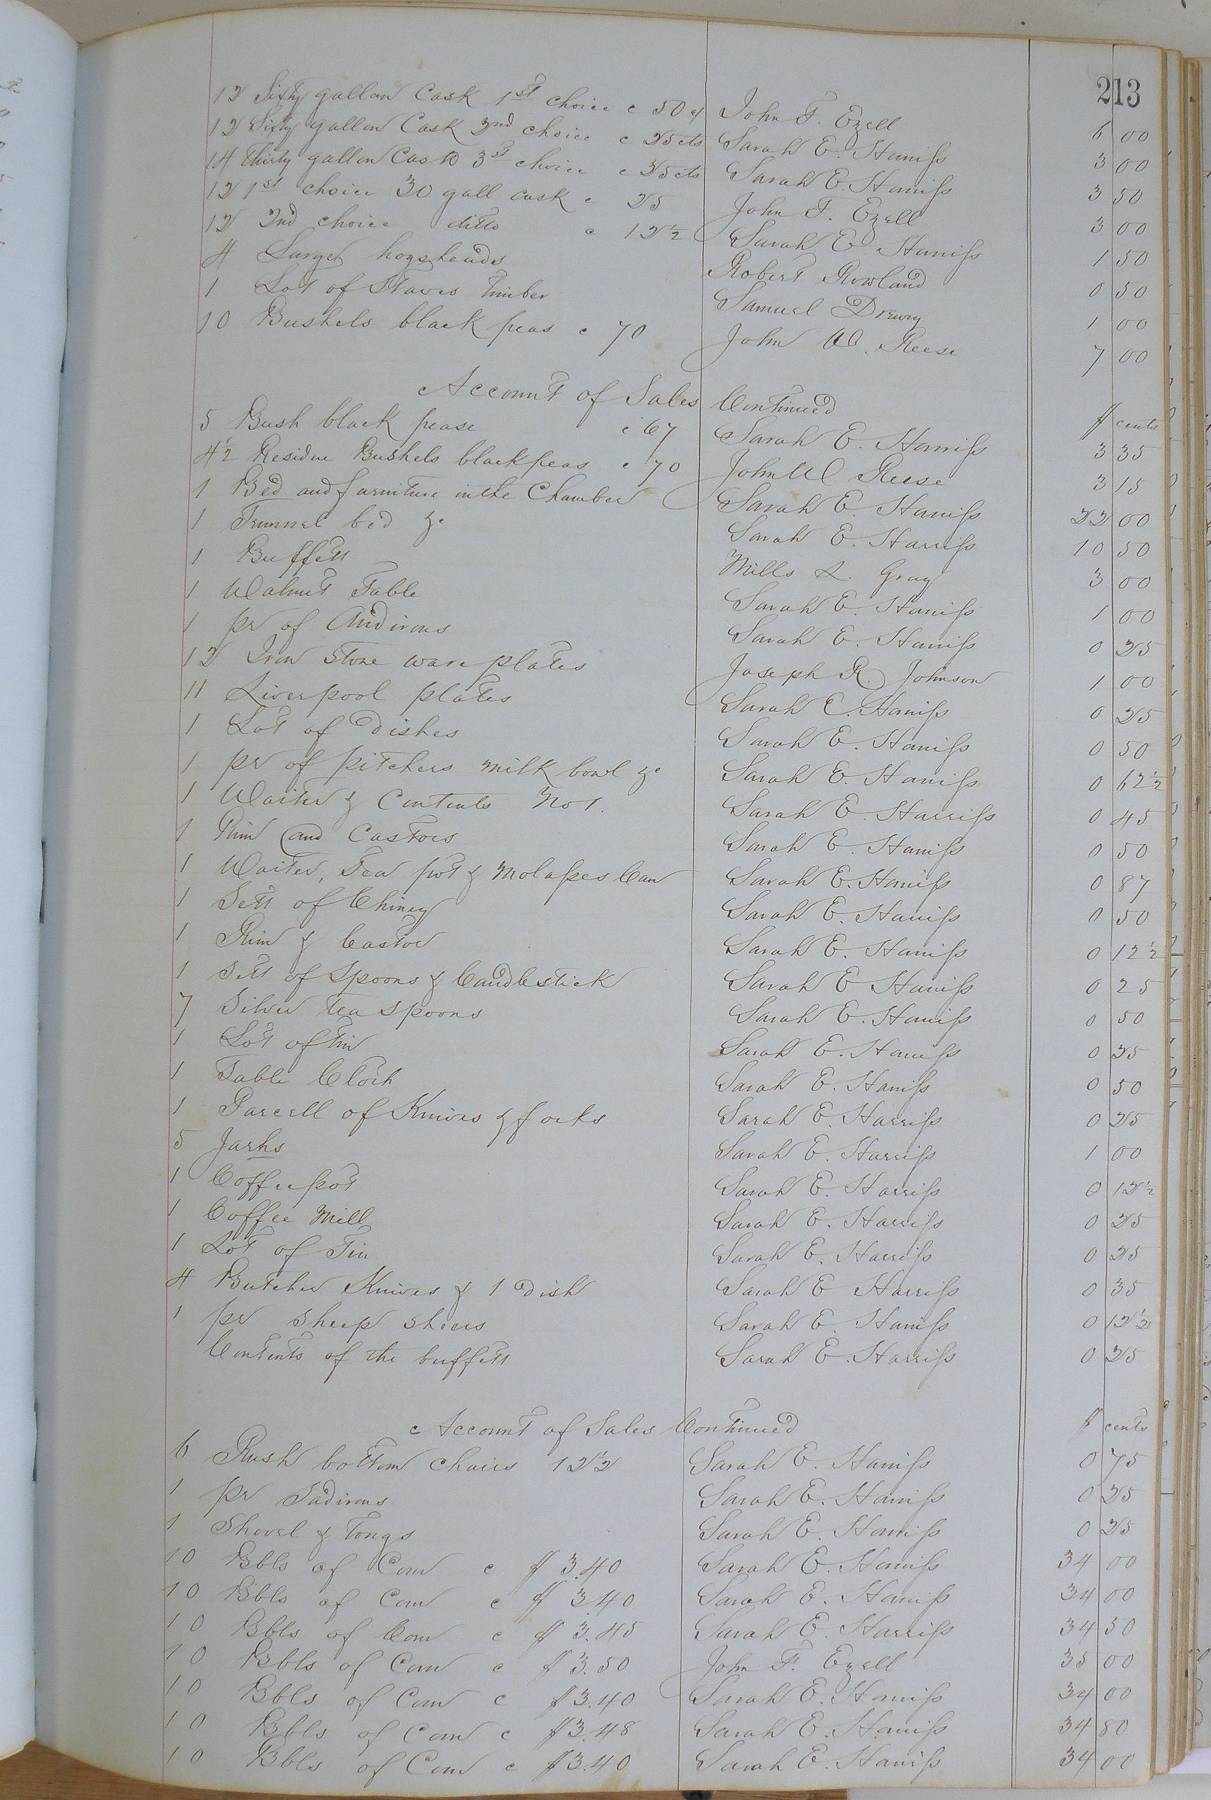 213
12 Sixty gallon Cask 1st choice c 50 c John F. Ezell 6 00
12 Sixty gallon Cask 2nd choice c 25 cts Sarah E. Harriss 3 00
14 Thirty gallon Cask 3d choice c 25 cts Sarah E. Harriss 3 50
12 1st choice 30 gall cask c 25 John F. Ezell 3 00
12 2nd choice ditto c 12½ Sarah E Harriss 1 50
4 Large hogsheads Robert Rowland 0 50
1 Lot of Staves timber Samuel Drewry 1 00
10 Bushels black peas c 70 John W. Reese 7 00
Account of Sales Continued $ cents
5 Bush black pease c 67 Sarah E. Harriss 3 35
4½ Residue Bushels blackpeas c 70 John W Reese 3 15
1 Bed and furniture in the Chamber Sarah E Harriss 22 00
1 Trunnel bed &c Sarah E. Harriss 10 50
1 Buffett Mills L. Gray 3 00
1 Walnut Table Sarah E. Harriss 1 00
1 pr of Andirons Sarah E. Harriss 0 25
12 Iron Stone ware plates Joseph R. Johnson 1 00
11 Liverpool plates Sarah E. Harriss 0 25
1 Lot of dishes Sarah E. Harriss 0 50
1 pr of pitchers milk bowl &c Sarah E. Harriss 0 62½
1 Waiter & Contents No 1. Sarah E Harriss 0 45
1 Rim and Castors Sarah E. Harriss 0 50
1 Waiter, Tea pot & Molasses Can Sarah E. Harriss 0 87
1 Sett of Chiney Sarah E. Harriss 0 50
1 Rim & Castor Sarah E. Harriss 0 12½
1 Sett of Spoons & Candlestick Sarah E Harriss 0 25
7 Silver tea spoons Sarah E. Harriss 0 50
1 Lot of tin Sarah E. Harriss 0 25
1 Table Cloth Sarah E. Harriss 0 50
1 Parcell of Knives & forks Sarah E. Harriss 0 25
5 Jarhs Sarah E. Harriss 1 00
1 Coffeepot Sarah E. Harriss 0 12½
1 Coffee Mill Sarah E. Harriss 0 25
1 Lot of Tin Sarah E. Harriss 0 25
4 Butcher Knives & 1 Dish Sarah E Harriss 0 35
1 pr Sheep Sheers Sarah E. Harriss 0 12½
Contents of the buffett Sarah E. Harriss 0 25
Account of Sales Continued $ cents
6 Rush bottom chairs 12½ Sarah E. Harriss 0 75
1 pr Sadirons Sarah E. Harriss 0 25
1 Shovel & Tongs Sarah E. Harriss 0 25
10 Bbls of Corn c $3.40 Sarah E. Harriss 34 00
10 Bbls of Corn c $3.40 Sarah E. Harriss 34 00
10 Bbls of Corn c $3.45 Sarah E. Harriss 34 50
10 Bbls of Corn c $3.50 John F. Ezell 35 00
10 Bbls of Corn c $3.40 Sarah E. Harriss 34 00
10 Bbls of Corn c $3.48 Sarah E. Harriss 34 80
10 Bbls of Corn c $3.40 Sarah E. Harriss 34 00